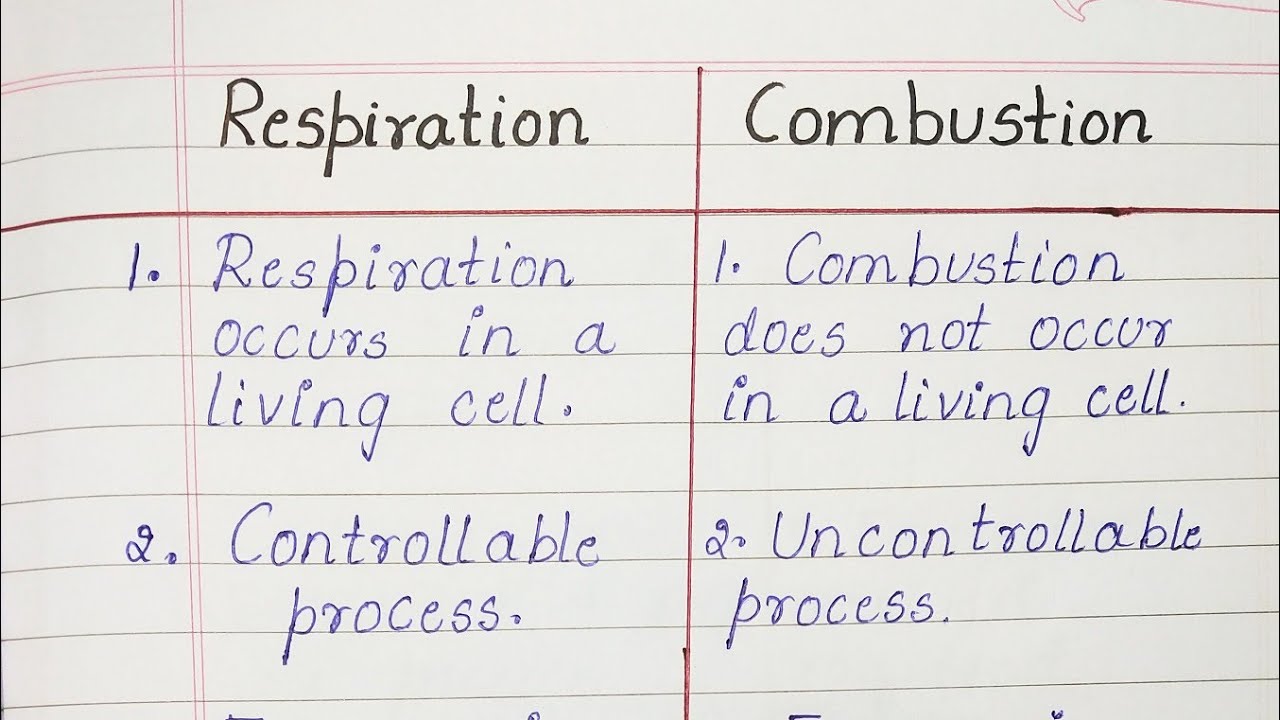 Respiration
Combustion
1. Respiration
occurs in a
living cell.
1. Combustion
does not occur
in a living cell.
2. Controllable
process.
2. Uncontrollable
process.